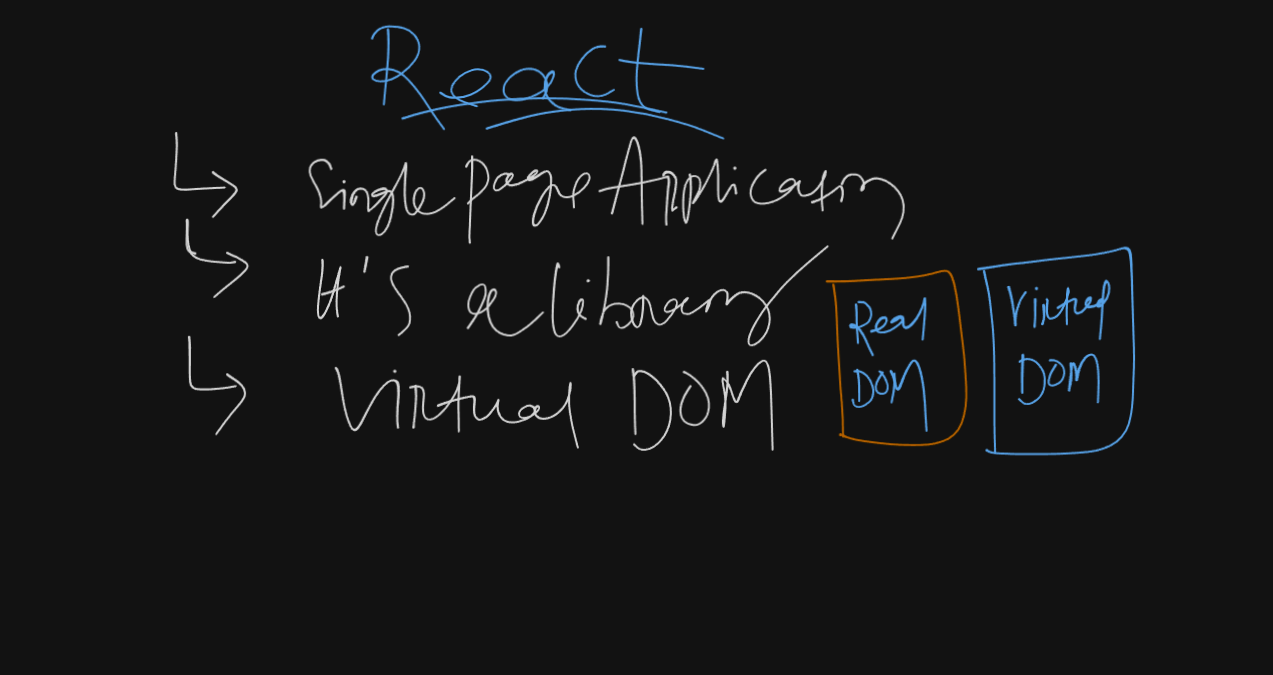 React
Single Page Application
It's a library
Virtual DOM
Real
DOM
Virtual
DOM